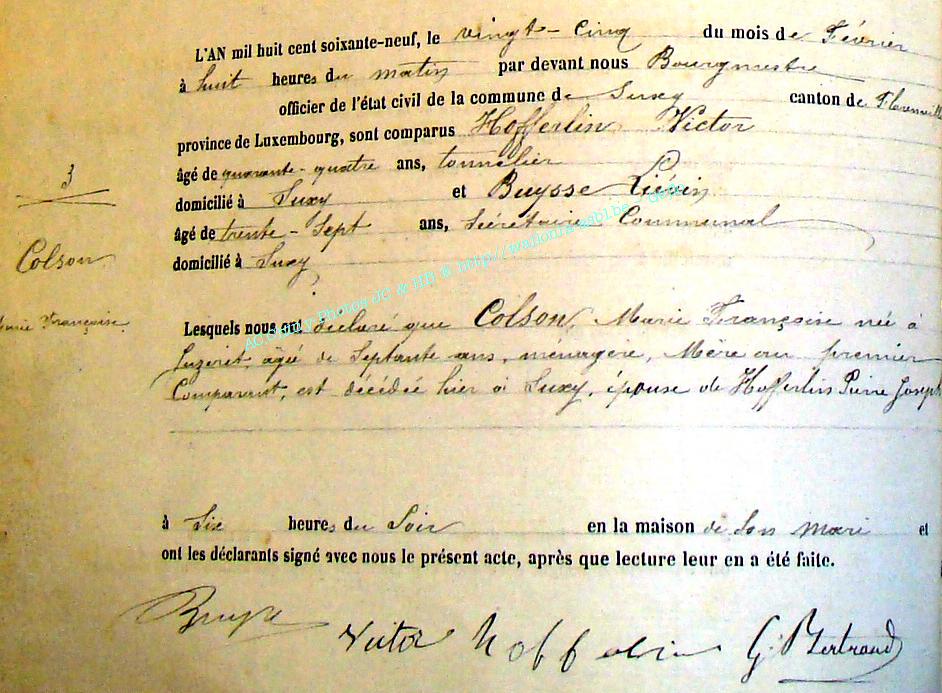 L'AN mil huit cent soixante-neuf, le vingt-cinq du mois de Février
à huit heures du matin par devant nous Bourgmestre
officier de l'état civil de la commune de Suxy canton de
province de Luxembourg, sont comparus Hofferlin Victor
âgé de quarante-quatre ans, tonnelier
3
domicilié à Suxy et Buysse Liévin
âgé de trente-Sept ans, Secrétaire Communal
Colson
domicilié à Suxy
Marie Françoise
Lesquels nous ont déclaré que Colson, Marie Françoise née à
agée de Septante ans, ménagère, Mère au premier
Comparant, est décédée hier à Suxy, épouse de Hofferlin Pierre Joseph
à Six heures du Soir en la maison de Son mari et
ont les déclarants signé avec nous le présent acte, après que lecture leur en a été faite.
Victor Hofferlin G. Bertrand